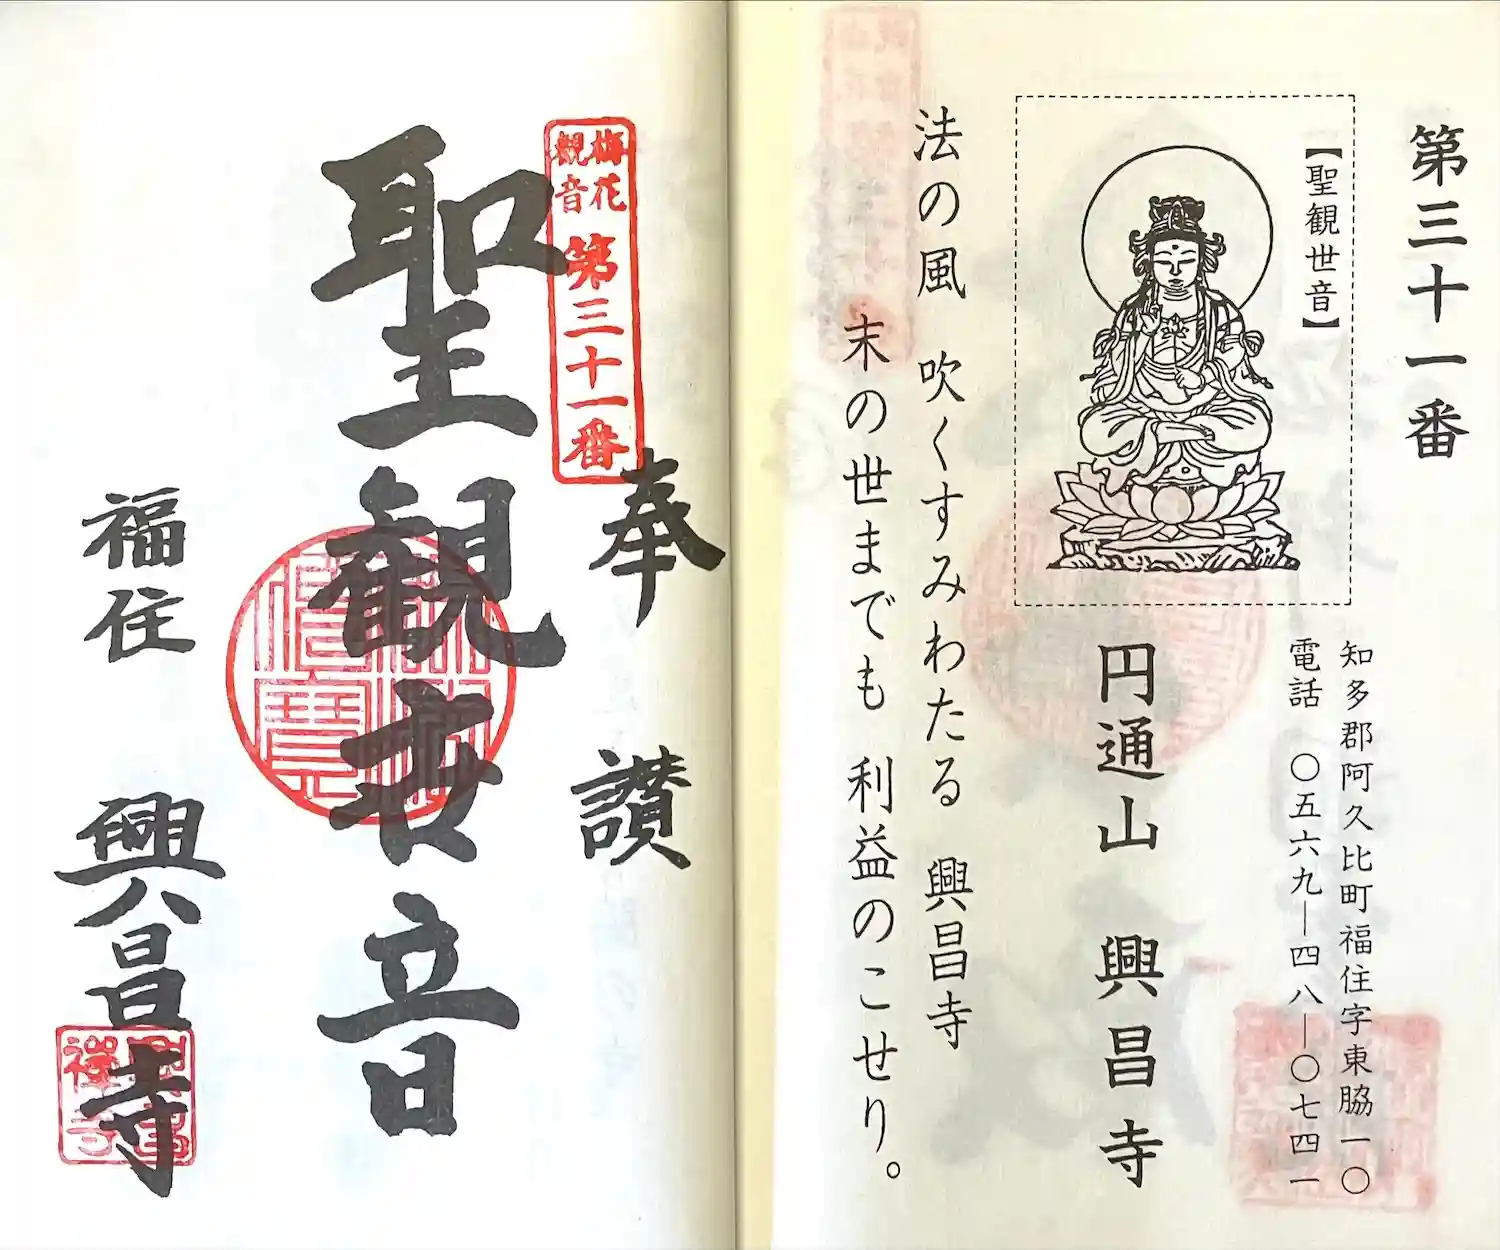 第三十一番
【聖観世音】
知多郡阿久比町福住字東脇一〇
電話 〇五六九―四八―〇七四一
円通山 興昌寺
法の風 吹くすみわたる 興昌寺
末の世までも 利益のこせり。
梅花
観音
第三十一番
奉讃
聖観世音
福住 興昌寺